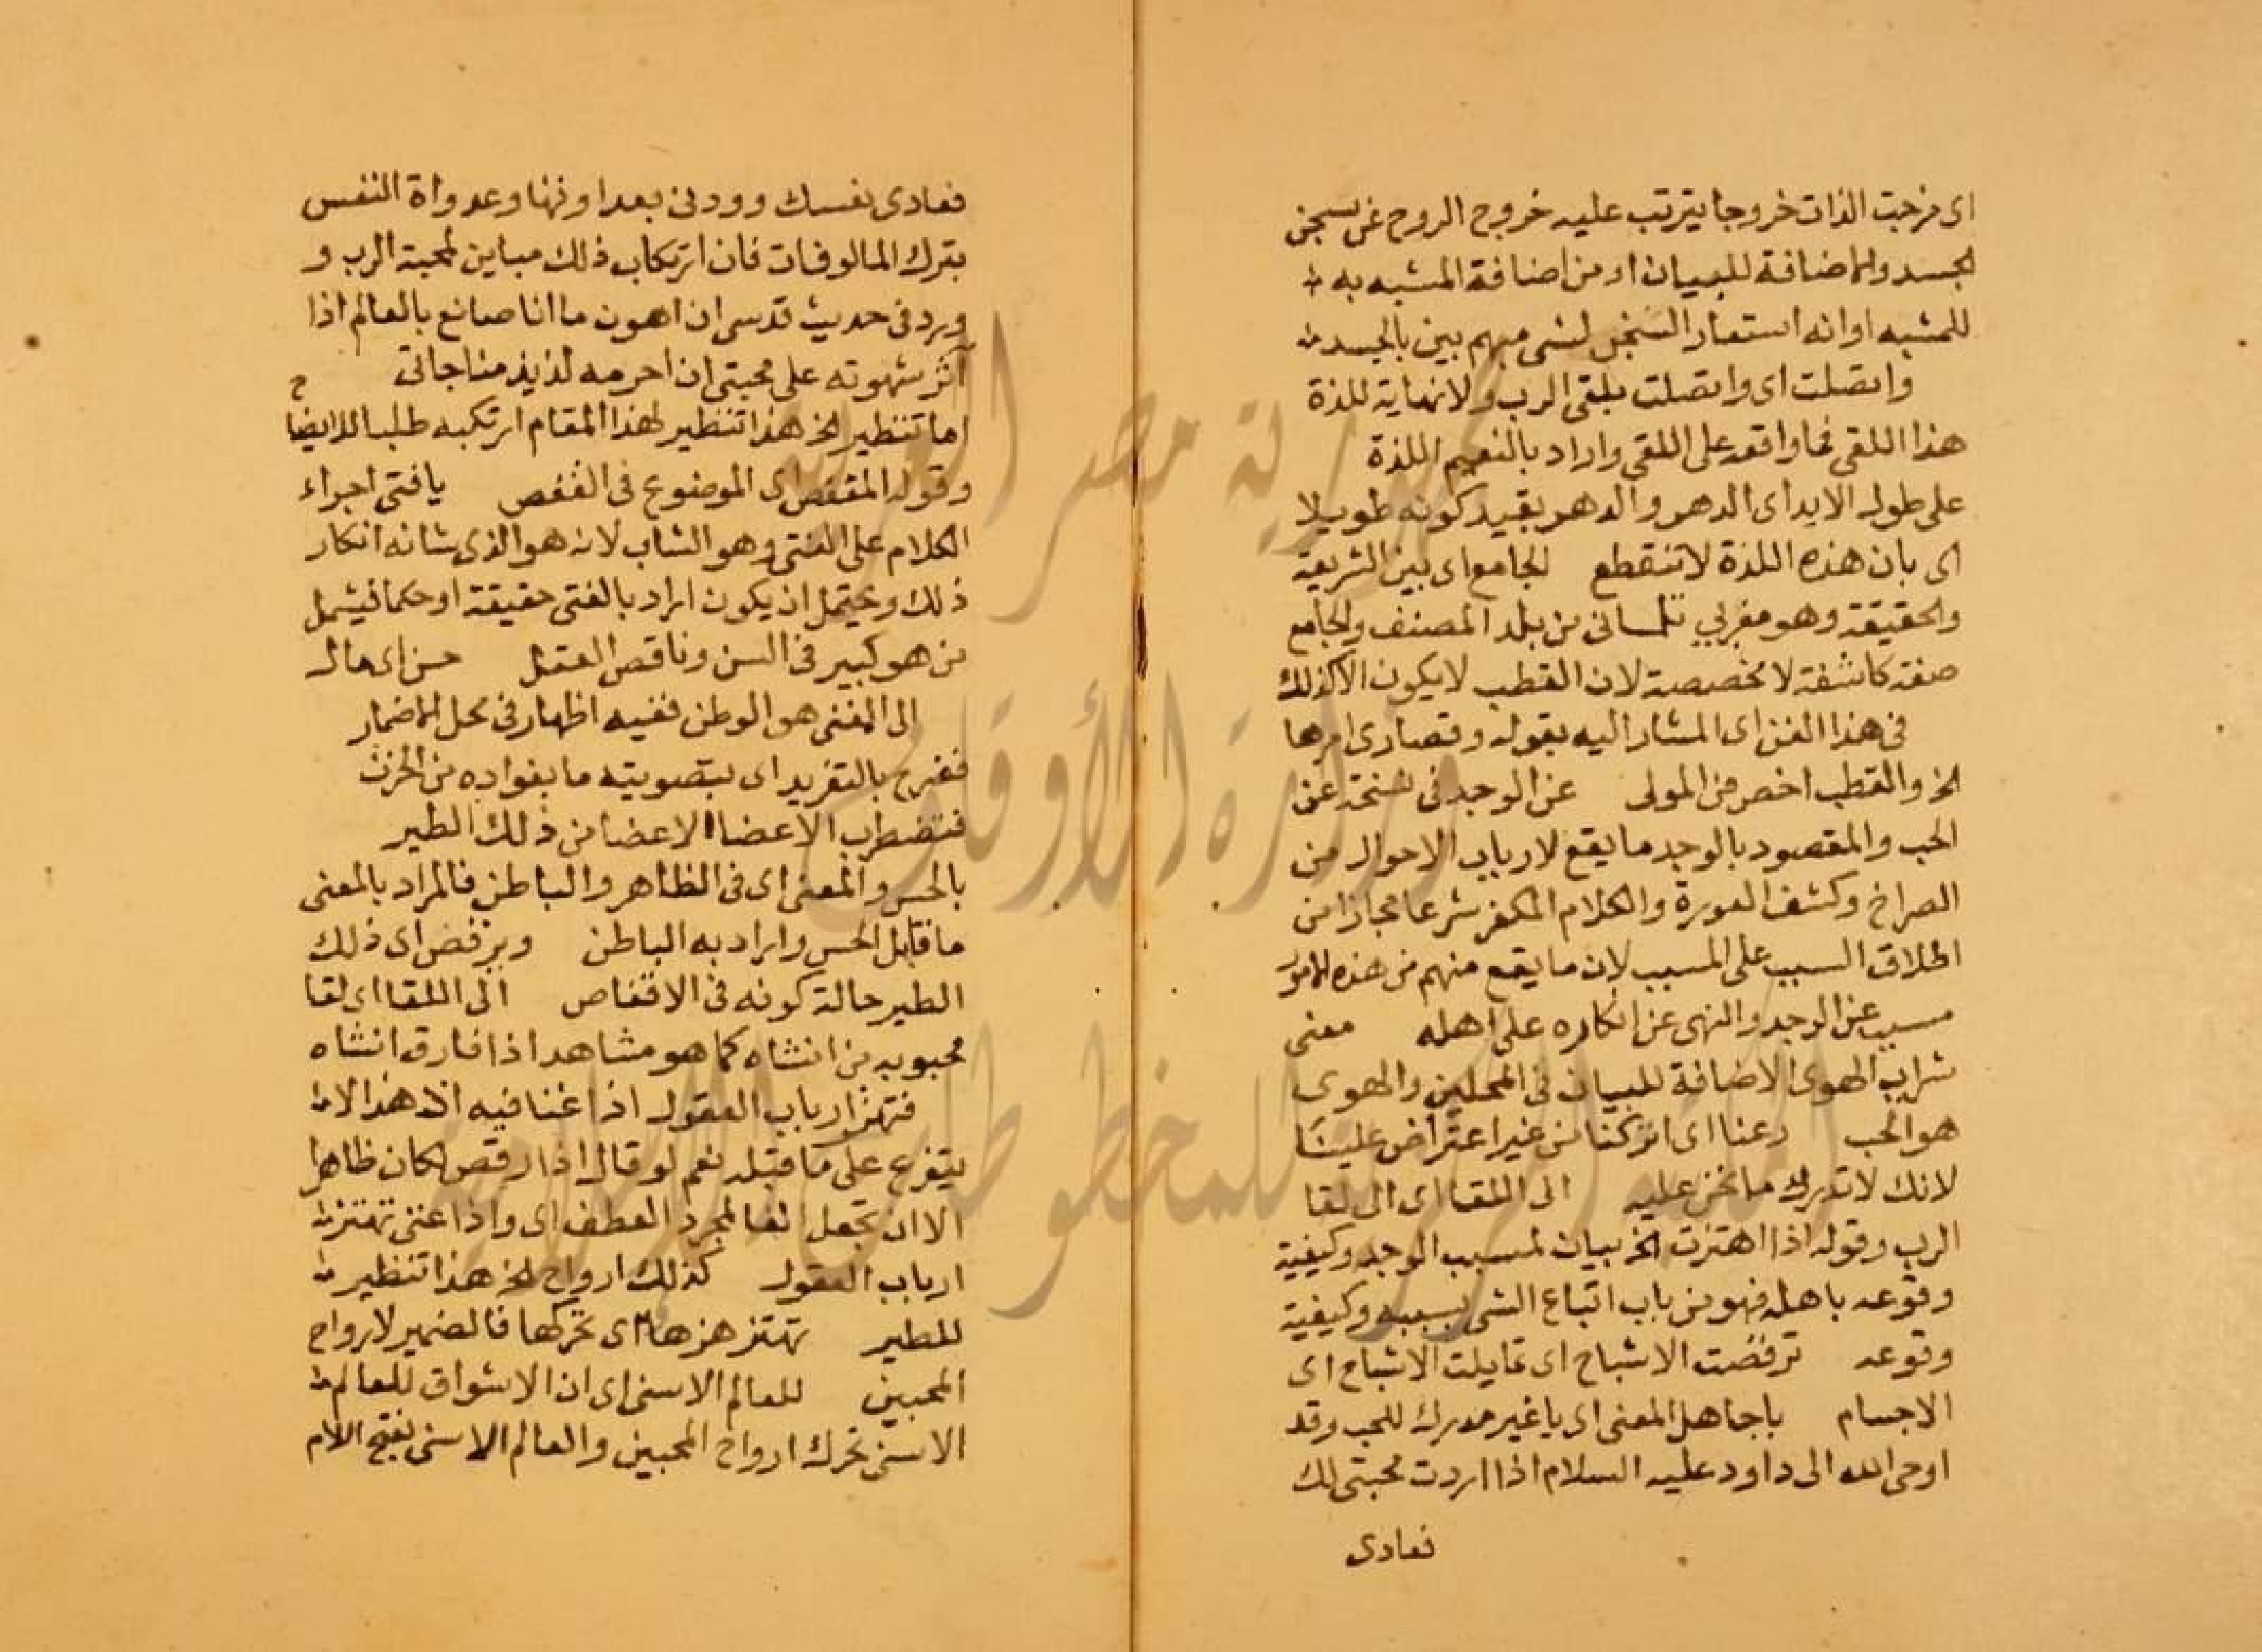 اى فرحت الذات خروجا يترتب عليه خروج الروح عن سجن
الجسد والاضافة للبيان او من اضافة المشبه به
للمشبه او انه استعار السجن لشى مبهم بين بالجسد
واتصلت اى واتصلت بلقى الرب ولا نهاية للذة
هذا اللقى فما واقعه على اللقى واراد بالنعيم اللذة
على طول الابد اى الدهر والدهر بقيد كونه طويلا
اى بان هذه اللذة لا تنقطع الجامع اى بين الشريعة
والحقيقة وهو مغربي تلمسانى من بلد المصنف والجامع
صفة كاشفة لا مخصصة لان القطب لا يكون الا كذلك
فى هذا الفن اى المشار اليه بقوله وقصارى امرها
الخ والقطب اخص من المولى عن الوجد فى نسخة عن
الحب والمقصود بالوجد ما يقع لارباب الاحوال من
الصراخ وكشف العورة والكلام المكفر شرعا مجازا من
اطلاق السبب على المسبب لان ما يقع منهم من هذه الامور
مسبب عن الوجد والنهى عن انكاره على اهله معنى
شراب الهوى الاضافة للبيان فى المحلين والهوى
هو الحب دعنا اى اتركنا من غير اعتراض علينا
لانك لا تدرك ما نحن عليه الى اللقا اى الى لقا
الرب وقوله اذا اهتزت الخ بيان لسبب الوجد وكيفية
وقوعه باهله فهو من باب اتباع الشى بسببه وكيفية
وقوعه ترقصت الاشباح اى تمايلت الاشباح اى
الاجسام ياجاهل المعنى اى يا غير مدرك للحب وقد
اوحى الله الى داود عليه السلام اذا اردت محبتى لك
فعادى
فعادى نفسك وودنى بعداوتها وعدواة النفس
بترك المالوفات فان ارتكاب ذلك مباين لمحبة الرب و
ورد فى حديث قدسى ان اهون ما انا صانع بالعالم اذا
آثر شهوته على محبتى ان احرمه لذيذ مناجاتى
اما تنظير الخ هذا تنظير لهذا المقام ارتكبه طلبا للايضا ح
وقوله المقفص اى الموضوع فى القفص يافتى اجراء
الكلام على الفتى وهو الشاب لانه هو الذى شانه انكار
ذلك ويحتمل ان يكون اراد بالفتى حقيقة او حكما فيشمل
من هو كبير فى السن وناقص العقل حن اى مال
الى المغنى هو الوطن ففيه اظهار فى محل الاضمار
فيفرج بالتغريد اى بتصويته ما بفواده من الحزن
فتضطرب الاعضا الاعضا من ذلك الطير
بالحس والمعنى اى فى الظاهر والباطن فالمراد بالمعنى
ما قابل الحس واراد به الباطن ويرقص اى ذلك
الطير حالة كونه فى الاقفاص الى اللقا اى لقا
محبوبه من انشاه كما هو مشاهد اذا فارق انشاه
فتهتز ارباب العقول اذا غنا فيه ان هذا لا
يتفرع على ما قبله نعم لو قال اذا رقص لكان ظاهرا
الا ان تجعل الفا لمجرد العطف اى واذا غنى تهتز
ارباب العقول كذلك ارواح الخ هذا تنظير
للطير تهتزهزها اى تحركها فالضمير لارواح
المحبين للعالم الاسنى اى ان الاشواق للعالم
الاسنى تحرك ارواح المحبين والعالم الاسنى بفتح اللام
جمهورية مصر العربية
وزارة الأوقاف